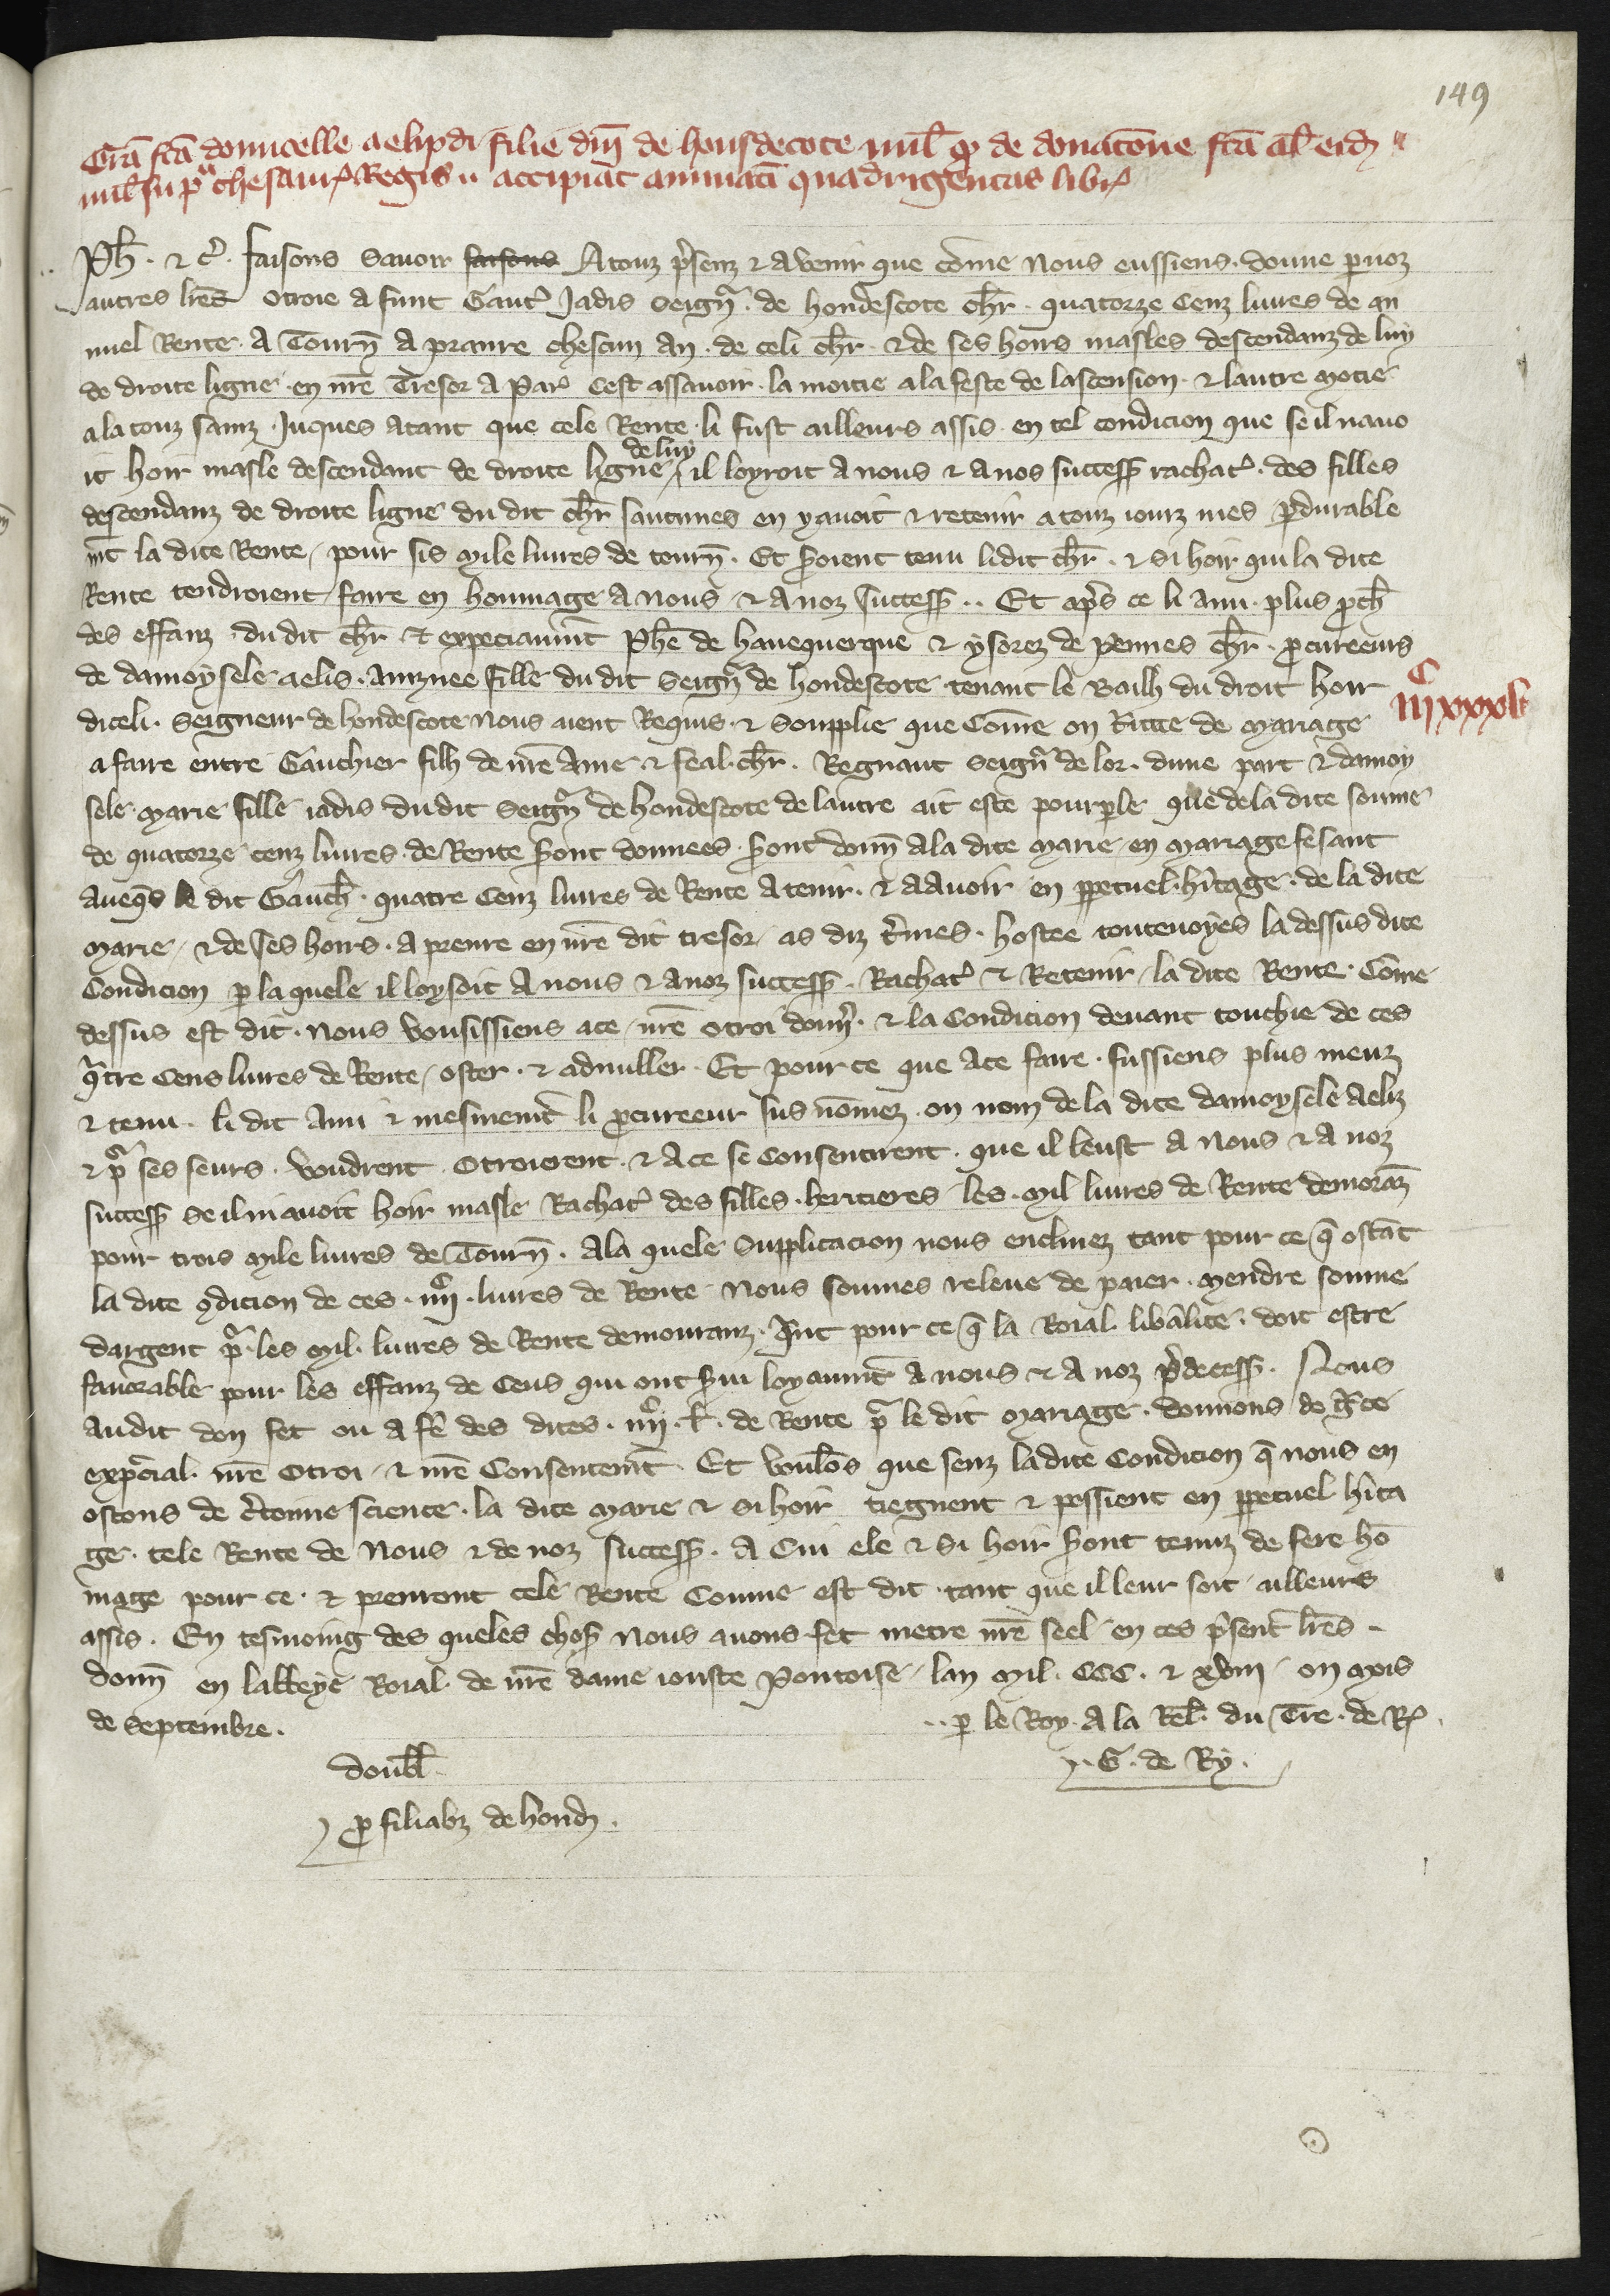 149
Gr̄a fc̄a domicelle aelipdi filie dn̄i de honsdecote mil̄ q de donatōne fc̄a al̄ eidē
mil̄ sup thesaur Regis accipiat annuatī quadrigentas libr
Ph̄. & c̄. faisons savoir faisons A touz p̄senz & avenir que cōme nous eussiens donne par noz
autres lr̄es otroie a funt Gaut̄ Jadis Seign̄ de hondescote ch̄r. quatorze cenz livres de an
nuel Rente A Tourn̄ a pranre chescun an. de celi ch̄r & de ses hoirs masles descendanz de luy
de droite ligne en nr̄e Tresor a Par cest assavoir la moitie a la feste de lascension & lautre motie
a la touz sainz Juques atant que cele Rente li fust ailleurs assis en tel condicion que se il navo
it hoir masle descendant de droite ligne de luy il loyroit a nous & a nos success̄ rachat̄ des filles
descendanz de droite ligne du dit ch̄r saucunes en y avoit & retenir a touz iourz mes p̄durable
mt̄ la dite Rente pour sis mile livres de tourn̄. Et s̄oient tenu li dit ch̄r. & si hoir qui la dite
Rente tendroient faire en hommage a nous & a noz success̄ .. Et ap̄s ce li ami plus p̄ch̄
des effanz du dit ch̄r & expeciaumt̄ Ph̄e de havequerque & ysorez de Pennes ch̄r. p̄cureeurs
de damoysele aelis. ainznee fille du dit Seign̄ de hondescote tenant le Bailh du droit hoir
diceli. Seigneur de hondescote nous aient Requis & soupplie que Cōme on t̄itte de mariage
a faire entre Gauchier filh de nr̄e ame & feal. ch̄r. Regnaut Seign̄ de lor. dune part & damoy
sele marie fille iadis du dit Seign̄ de hondescote de lautre ait este pourp̄le que de la dite soume
de quatorze cenz livres de Rente s̄ont donnees s̄ont donn̄ a la dite marie en mariage fesant
aveq̄s le dit Gauch̄ quatre Cenz livres de Rente a tenir & a avoir en p̄petuel hītage de la dite
marie & de ses hoirs. a prenre en nr̄e dit tresor as diz t̄mes hostee toutevoyes la dessus dite
Condicion p̄ la quele il loysoit a nous & a noz success̄. Rachat̄ & Retenir la dite Rente Cōme
dessus est dit. nous vousissiens a ce nr̄e otroi donn̄ & la Condicion devant touchie de ces
q̄tre Cens livres de Rente oster. & adnuller. Et pour ce que a ce faire fussiens plus meuz
& tenu. li dit ami & mesmemt̄ li p̄cureeur sus nōmez on nom de la dite damoysele aeliz
& p̄ ses seurs. voudrent otroierent & a ce se Consentirent. que il leust a nous & a noz
success̄ se il ni avoit hoir masle Rachat̄ des filles heritieres les mil livres de Rente demoranz̄
pour trois mile livres de Tourn̄. A la quele Supplicacion nous enclinez tant pour ce q̄ ostāt
la dite 9dicion de ces. iiijc. livres de Rente nous soumes releve de paier mendre soume
dargent p̄ les mil livres de Rente demouranz. q̄nt pour ce q̄ la Roial libālite doit estre
favorable pour les effanz de Ceus qui ont s̄vi loyaumt̄ a nous & a noz p̄decess̄. Nous
au dit don fet ou a fē des dites. iiijc. l̄. de Rente p̄ le dit mariage donnons de ḡce
exp̄cial nr̄e otroi & nr̄e Consentemt̄. Et voulōs que senz la dite Condicion q̄ nous en
ostons de c̄teinne science. la dite marie & si hoir tiegnent & possient en p̄petuel hīta
ge. tele Rente de nous & de noz success̄. a Cui ele & si hoir s̄ont tenuz de fere hō
mage pour ce & prenront cele Rente Coume est dit tant que il leur soit ailleurs
assis. En tesmoing des queles chos̄ nous avons fet metre nr̄e seel en ces p̄sent̄ lr̄es.
donn̄ en labbeye Roial de nr̄e dame iouste Pontoise lan mil. CCC. & xviii on mois
de Septembre. .. p̄ le Roy. a la Rel̄. du Tre. de R
G. de Ry.
doubl̄.
p̄ filiabz de hond̄.